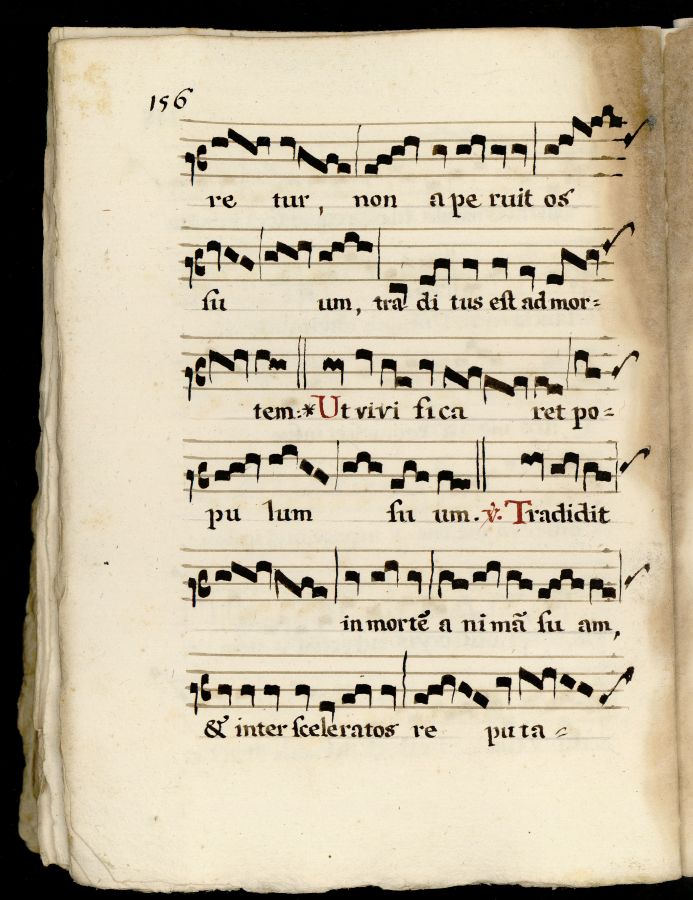 156
re tur, non aperuit os
su um, tradi tus est ad mor=
tem:* Ut vivi fica ret po=
pu lum su um. ℣. Tradidit
in mortē a nimā su am,
& inter sceleratos re puta=